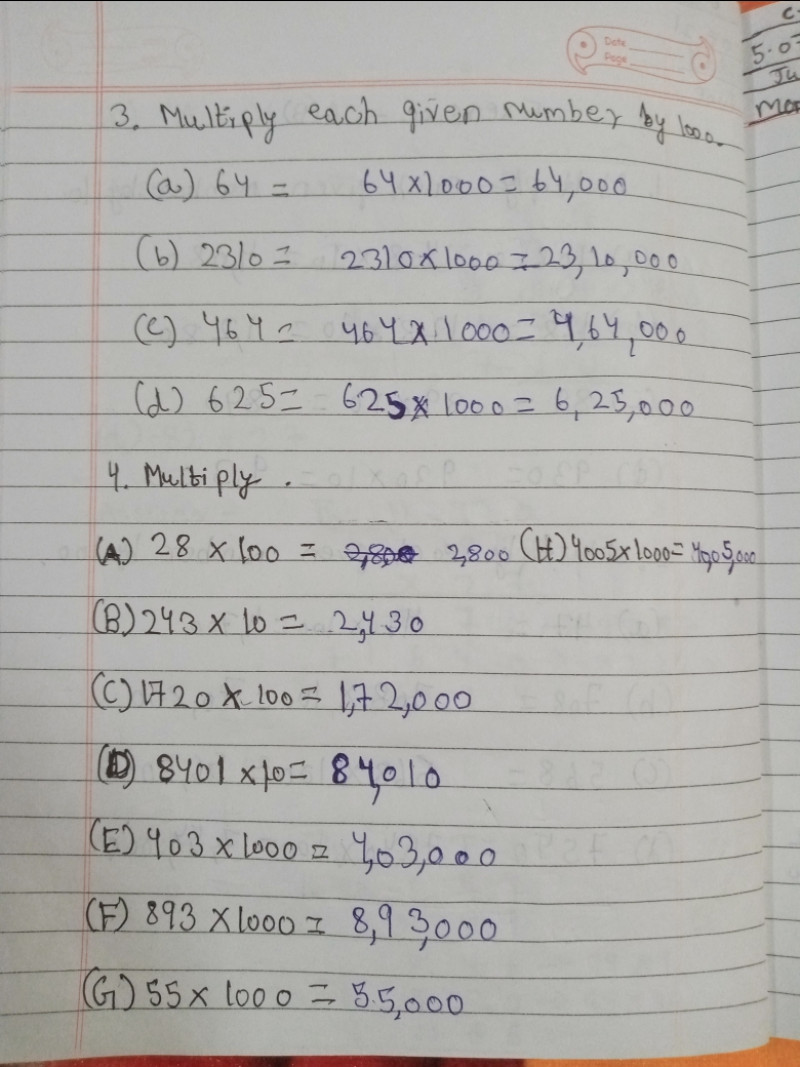 Date
Page
c.
5.0
Ju
Mar
3. Multiply each given number by 1000.
(a) 64 = 64×1000 = 64,000
(b) 2310 = 2310×1000 = 23,10,000
(c) 464 = 464×1000 = 4,64,000
(d) 625 = 625×1000 = 6,25,000
4. Multiply.
(A) 28 × 100 = 2,800 2,800 (H) 4005×1000 = 40,05,000
(B) 243 × 10 = 2,430
(C) 1720 × 100 = 1,72,000
(D) 8401 ×10 = 84,010
(E) 403 × 1000 = 4,03,000
(F) 893 ×1000 = 8,93,000
(G) 55 × 1000 = 55,000